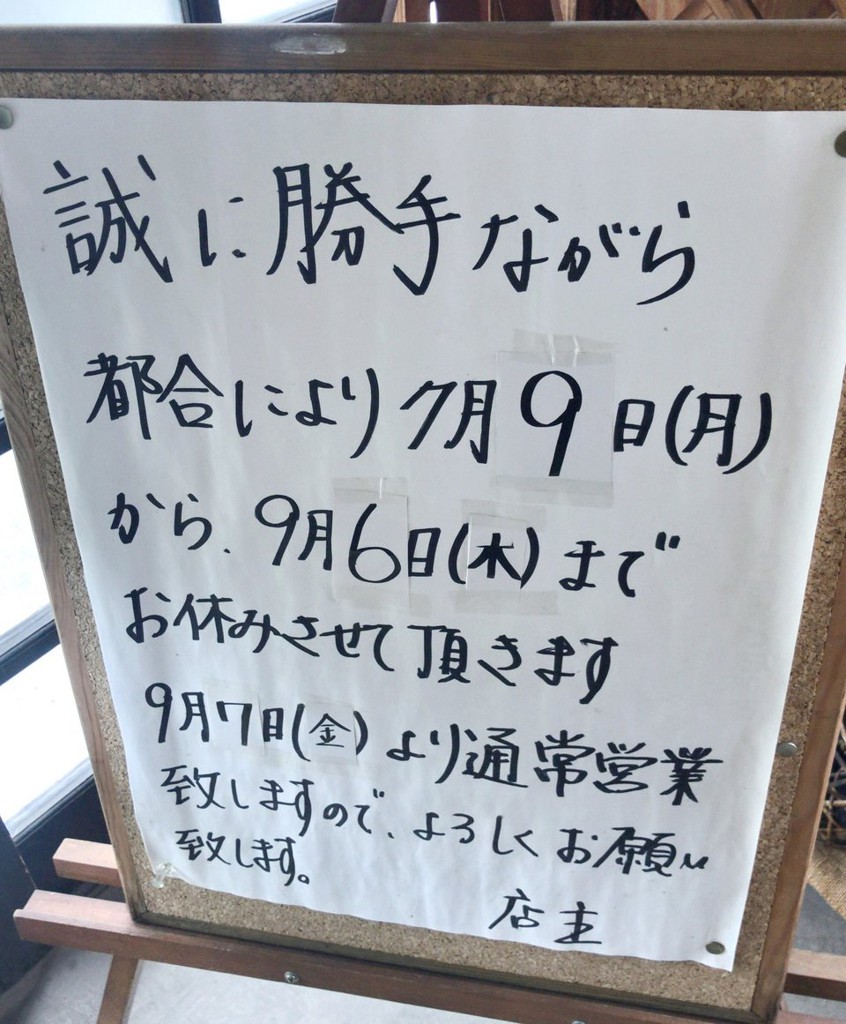 誠に勝手ながら
都合により7月9日(月)
から、9月6日(木)まで
お休みさせて頂きます
9月7日(金)より通常営業
致しますので、よろしくお願い
致します。
店主